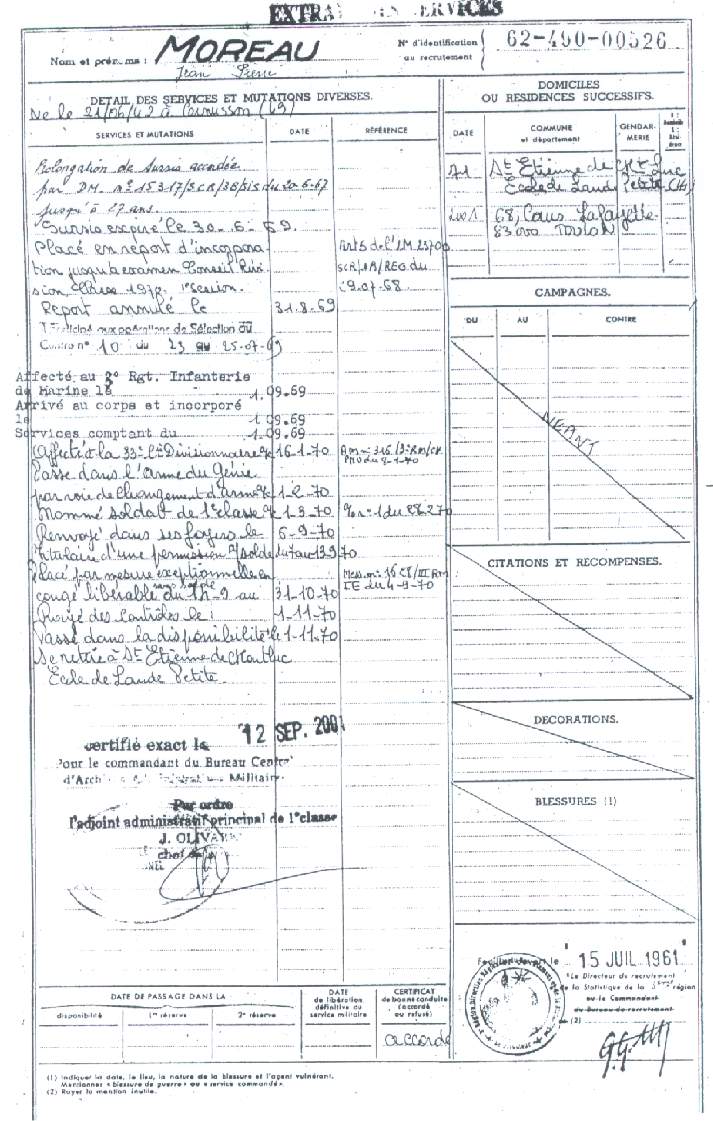 EXTRAIT DES SERVICES
Nom et prénoms : MOREAU
Jean Pierre
N° d'identification au recrutement
62-490-00526
DETAIL DES SERVICES ET MUTATIONS DIVERSES.
Né le 21/06/42 à (49)
SERVICES ET MUTATIONS DATE RÉFÉRENCE
Prolongation de sursis accordée
par DM. n° 15317/SCR/3B/SIS du 20-6-67
jusqu'à 27 ans.
Sursis expiré le 30-6-69.
Placé en report d'incorpora
tion jusqu'à examen Conseil Révi
sion Classe 1972. 1° session.
Art 5 de l'IM 23700
SCR/AR/REG. du
9.07.68
Report annulé le 31.8.69
Participé aux opérations de Sélection au
Centre n° 10 du 23 au 25-07-69
Affecté au 3° Rgt. Infanterie
de Marine le 1.09.69
Arrivé au corps et incorporé
le 1.09.69
Services comptant du 1.09.69
Affecté à la 33° Cie Divisionnaire le 16-1-70
Passe dans l'arme du Génie
par voie de changement d'arme le 1-2-70
Nommé soldat de 1° classe le 1-3-70
Renvoyé dans ses foyers le 6-9-70
Titulaire d'une permission solde du au 13 9 70
Placé par mesure exceptionnelle en
congé libérable du 14-9 au 31-10-70
Rayé des Contrôles le : 1-11-70
Passé dans la disponibilité le 1-11-70
Se retire à St Etienne de Montluc
Ecole de Lande Petite
certifié exact le 12 SEP. 2001
Pour le commandant du Bureau Central
d'Archives Administratives Militaires
Par ordre
l'adjoint administratif principal de 1°classe
J. OLIVARI
chef
DATE DE PASSAGE DANS LA
disponibilité 1re réserve 2e réserve
DATE
de libération
définitive du
service militaire
CERTIFICAT
de bonne conduite
(accordé
ou refusé)
accordé
DOMICILES
OU RÉSIDENCES SUCCESSIFS.
DATE
COMMUNE
et département
GENDAR-
MERIE
71 St Etienne de Mt Luc
Ecole de Lande Petite (44)
2001 68, Cours Lafayette
83000 TOULON
CAMPAGNES.
DU AU CONTRE
NEANT
CITATIONS ET RÉCOMPENSES.
DECORATIONS.
BLESSURES (1)
15 JUIL 1961
Le Directeur du recrutement
et de la Statistique de la 3ème région
ou le Commandant
du Bureau de recrutement
(2)
(1) Indiquer la date, le lieu, la nature de la blessure et l'agent vulnérant.
Mentionner « blessure de guerre » ou « service commandé ».
(2) Rayer la mention inutile.